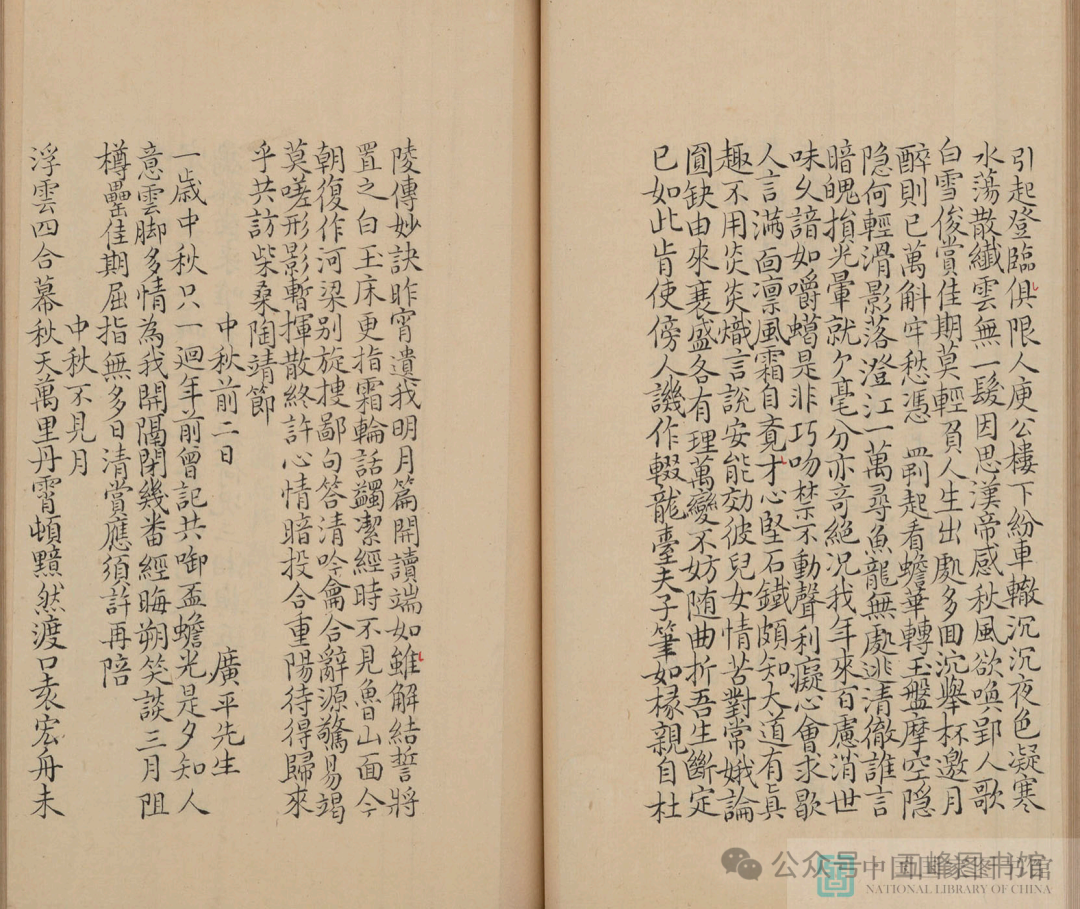 引起登臨俱限人庾公樓下紛車轍沉沉夜色凝寒
水蕩散纖雲無一髮因思漢帝感秋風欲喚郢人歌
白雪俊賞佳期莫輕負人生出處多回沉舉杯邀月
醉則已萬斛牢愁憑 罰起看蟾華轉玉盤摩空隱
隐何輕滑影落澄江一萬尋魚龍無處逃清徹誰言
暗魄損光暈就欠毫分亦奇絕況我年來百慮消世
味久諳如嚼蠟是非巧吻禁不動聲利癡心會求歇
人言滿面凛風霜自竟才心堅石鐵頗知大道有真
趣不用炎炎熾言說安能効彼兒女情苦對常娥論
圓缺由來衰盛各有理萬變不妨随曲折吾生斷定
已如此肯使傍人譏作輟龍臺夫子筆如椽親自杜
陵傳妙訣昨宵遺我明月篇開讀端如雖解結誓將
置之白玉床更指霜輪話蠲潔經時不見魯山面今
朝復作河梁别旋摟鄙句答清吟龠合辭源驚易竭
莫嗟形影暫揮散終許心情暗投合重陽待得歸來
乎共訪柴桑陶靖節
中秋前二日 廣平先生
一歲中秋只一迴年前曾記共啣盃蟾光是夕知人
意雲脚多情為我開隔閉幾畨經晦朔笑談三月阻
樽罍佳期屈指無多日清賞應須許再陪
中秋不見月
浮雲四合幕秋天萬里丹霄頓黯然渡口袁宏舟未
公众号·五峰图书馆
中国国家图书馆
NATIONAL LIBRARY OF CHINA